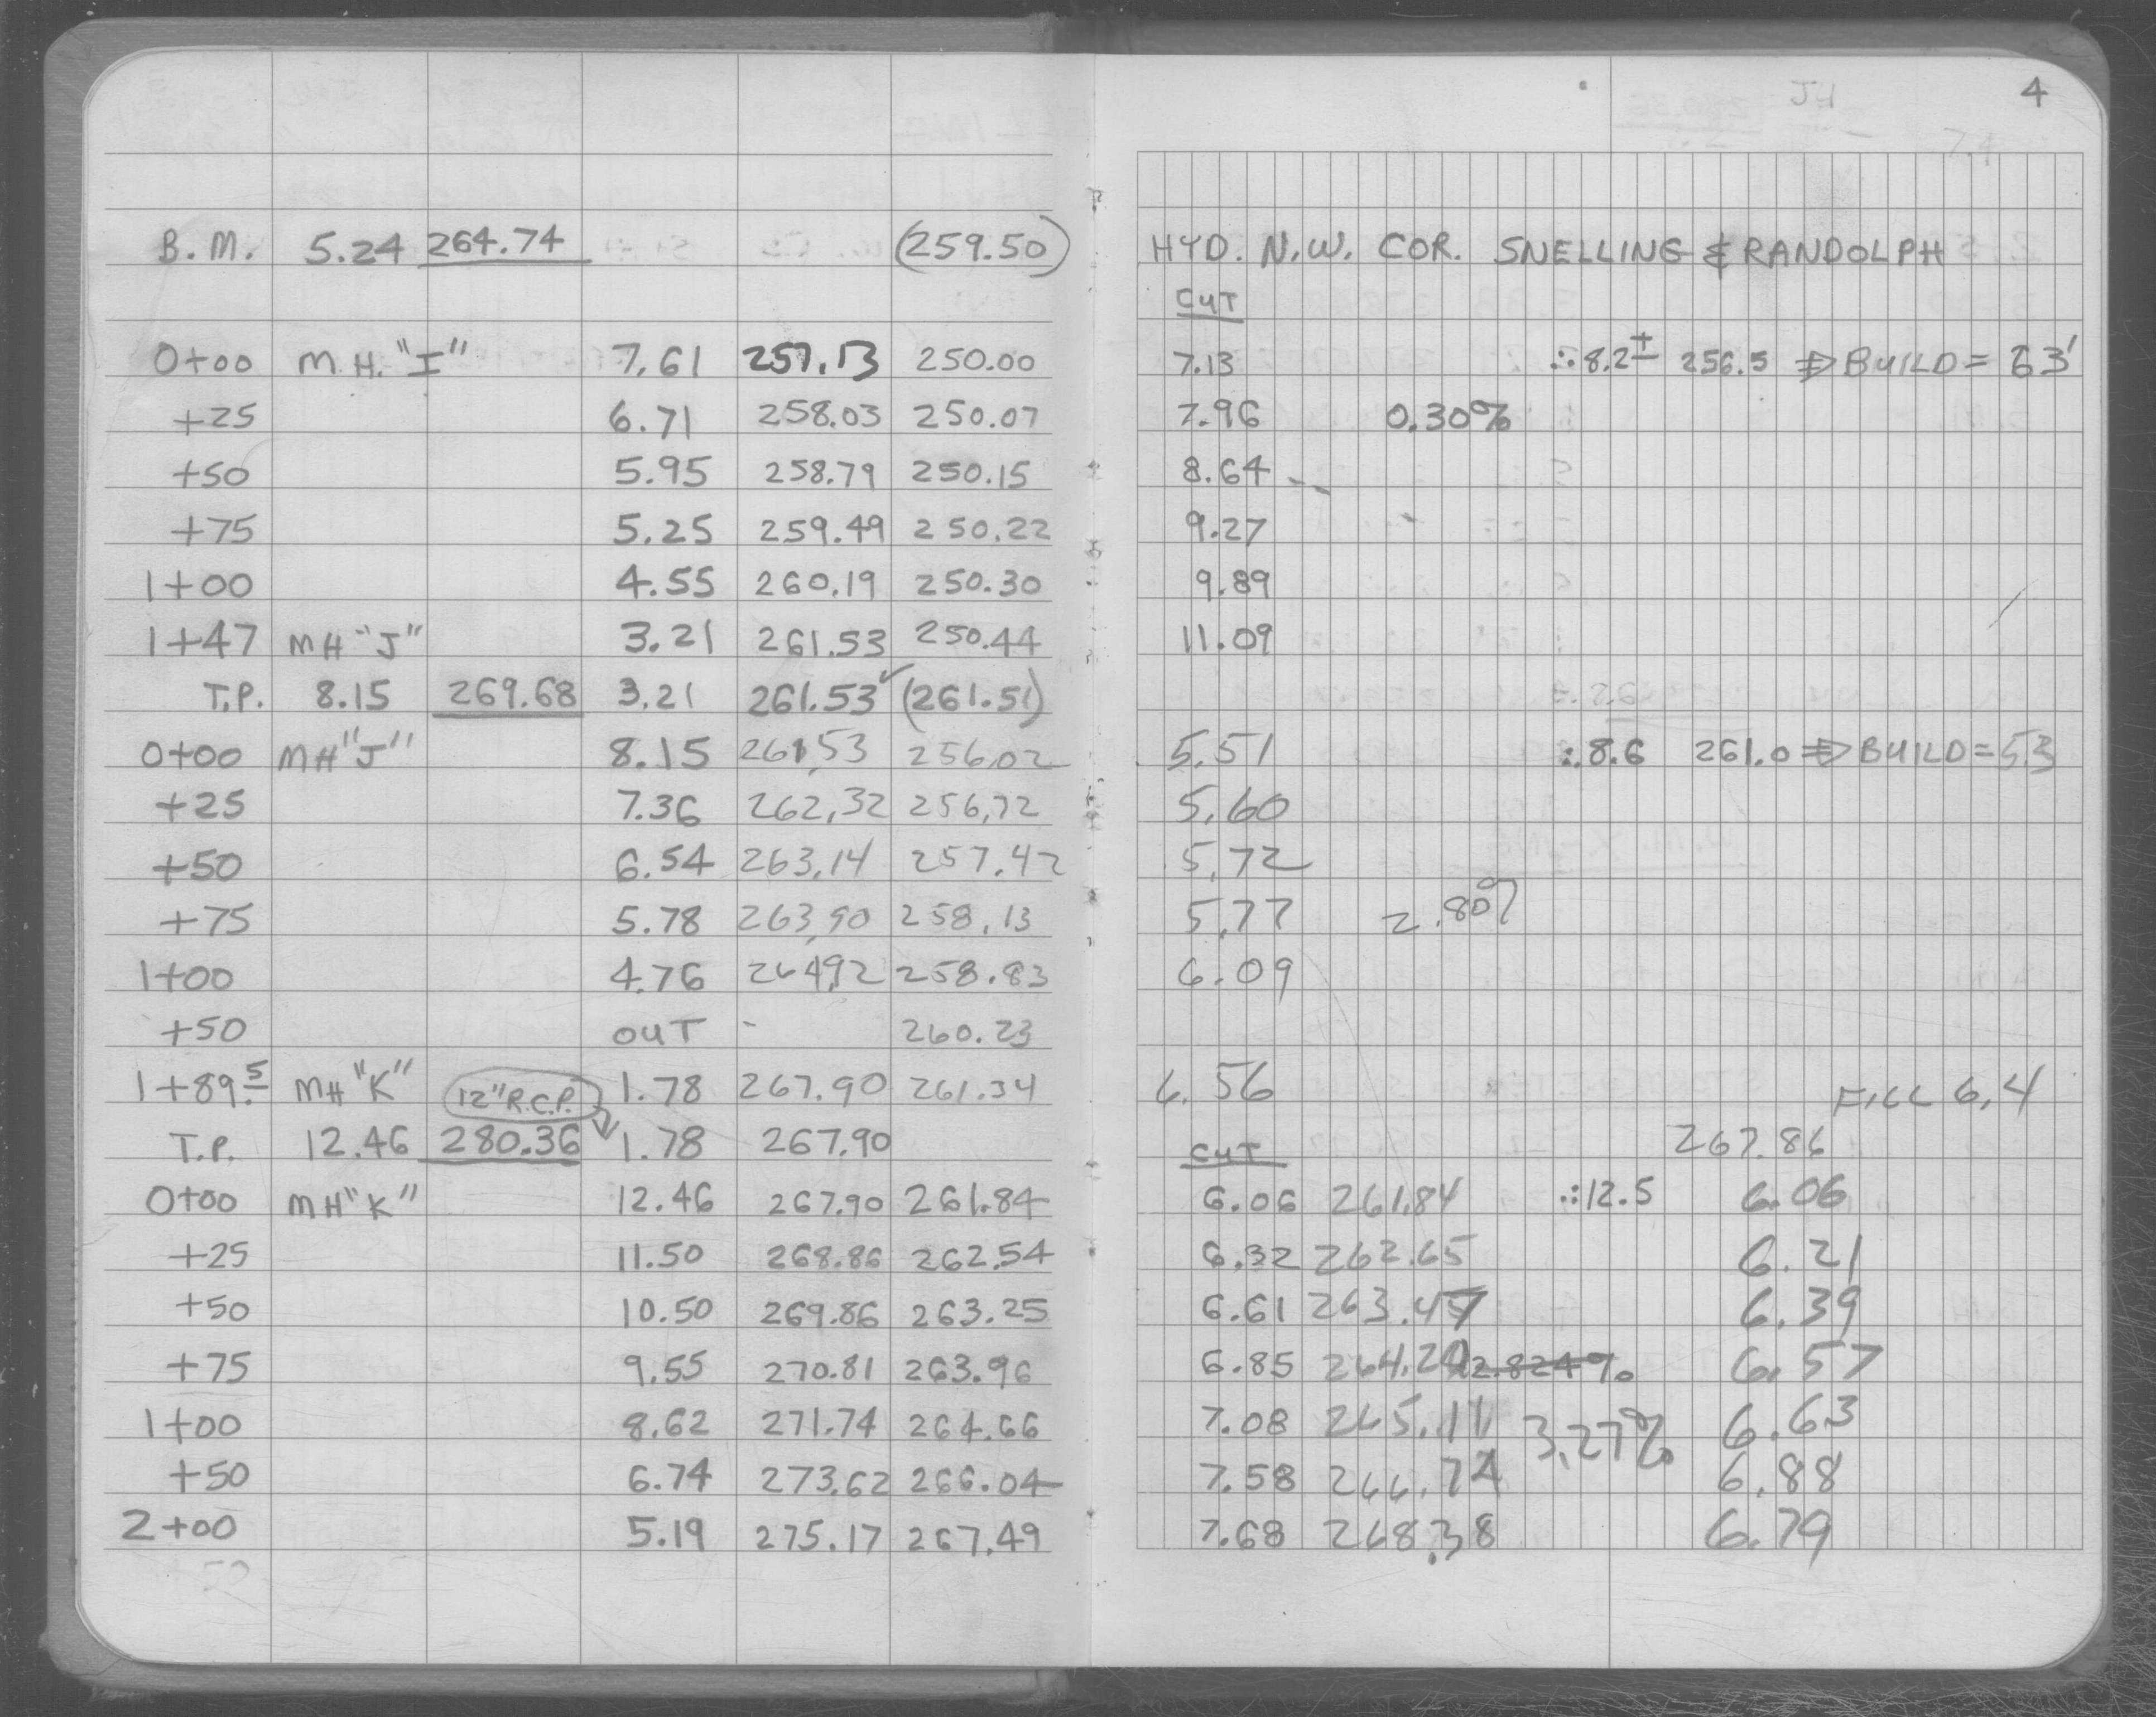 4
B.M. 5.24 264.74 (259.50) HYD. N.W. COR. SNELLING & RANDOLPH
CUT
0+00 M.H. "I" 7.61 257.13 250.00 7.13 ∴8.2± 256.5 ⇒ BUILD = 63'
+25 6.71 258.03 250.07 7.96 0.30%
+50 5.95 258.79 250.15 8.64
+75 5.25 259.49 250.22 9.27
1+00 4.55 260.19 250.30 9.89
1+47 MH "J" 3.21 261.53 250.44 11.09
T.P. 8.15 269.68 3.21 261.53✓ (261.51)
0+00 MH "J" 8.15 261.53 256.02 5.51 ∴8.6 261.0 ⇒ BUILD = 53
+25 7.36 262.32 256.72 5.60
+50 6.54 263.14 257.42 5.72
+75 5.78 263.90 258.13 5.77 2.80%
1+00 4.76 264.92 258.83 6.09
+50 OUT - 260.23
1+89.5 MH "K" 12" R.C.P. 1.78 267.90 261.34 6.56 FILL 6.4
T.P. 12.46 280.36 1.78 267.90 CUT 267.86
0+00 MH "K" 12.46 267.90 261.84 6.06 261.84 ∴12.5 6.06
+25 11.50 268.86 262.54 6.32 262.65 6.21
+50 10.50 269.86 263.25 6.61 263.47 6.39
+75 9.55 270.81 263.96 6.85 264.29 2.824% 6.57
1+00 8.62 271.74 264.66 7.08 265.11 3.27% 6.63
+50 6.74 273.62 266.04 7.58 266.74 6.88
2+00 5.19 275.17 267.49 7.68 268.38 6.79